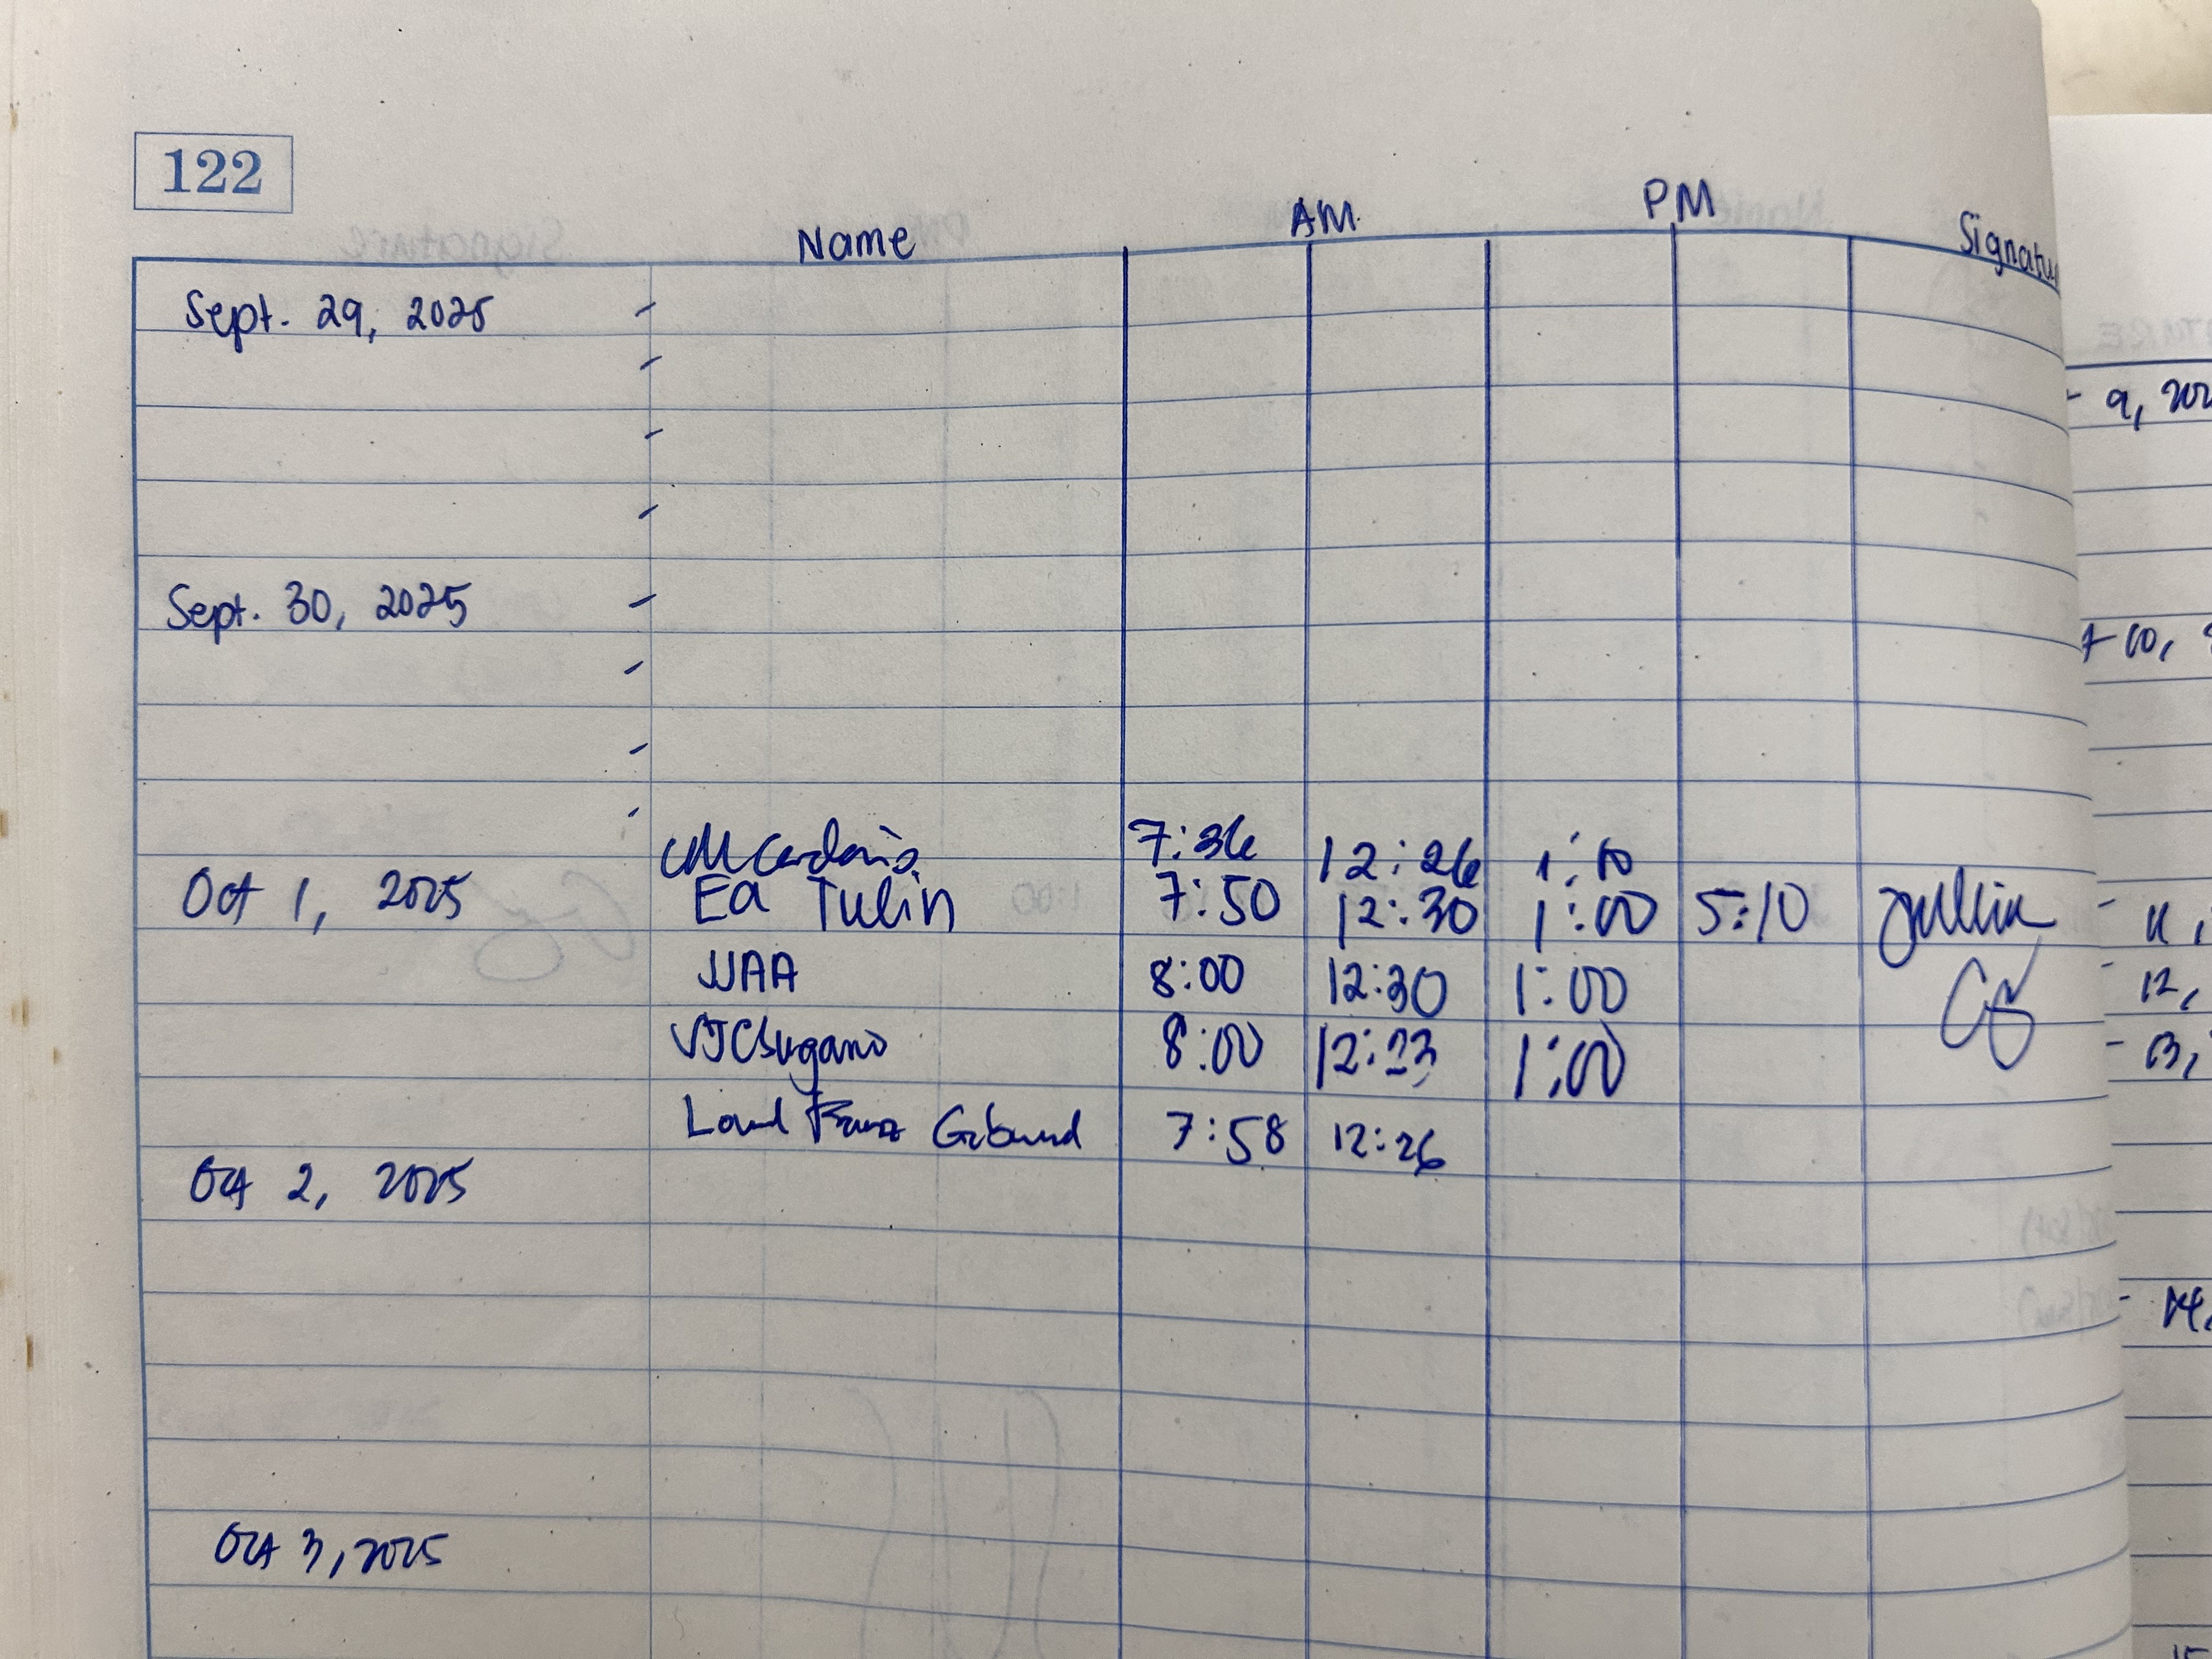 122
Name AM PM Signatu
Sept. 29, 2025
Sept. 30, 2025
7:36 12:26 1:10
Oct 1, 2025 Ea Tulin 7:50 12:30 1:00 5:10
JJAA 8:00 12:30 1:00
8:00 12:23 1:00
7:58 12:26
Oct 2, 2025
Oct 3, 2025
- 9, 202
10,
- 11,
- 12,
- 13,
- 14,